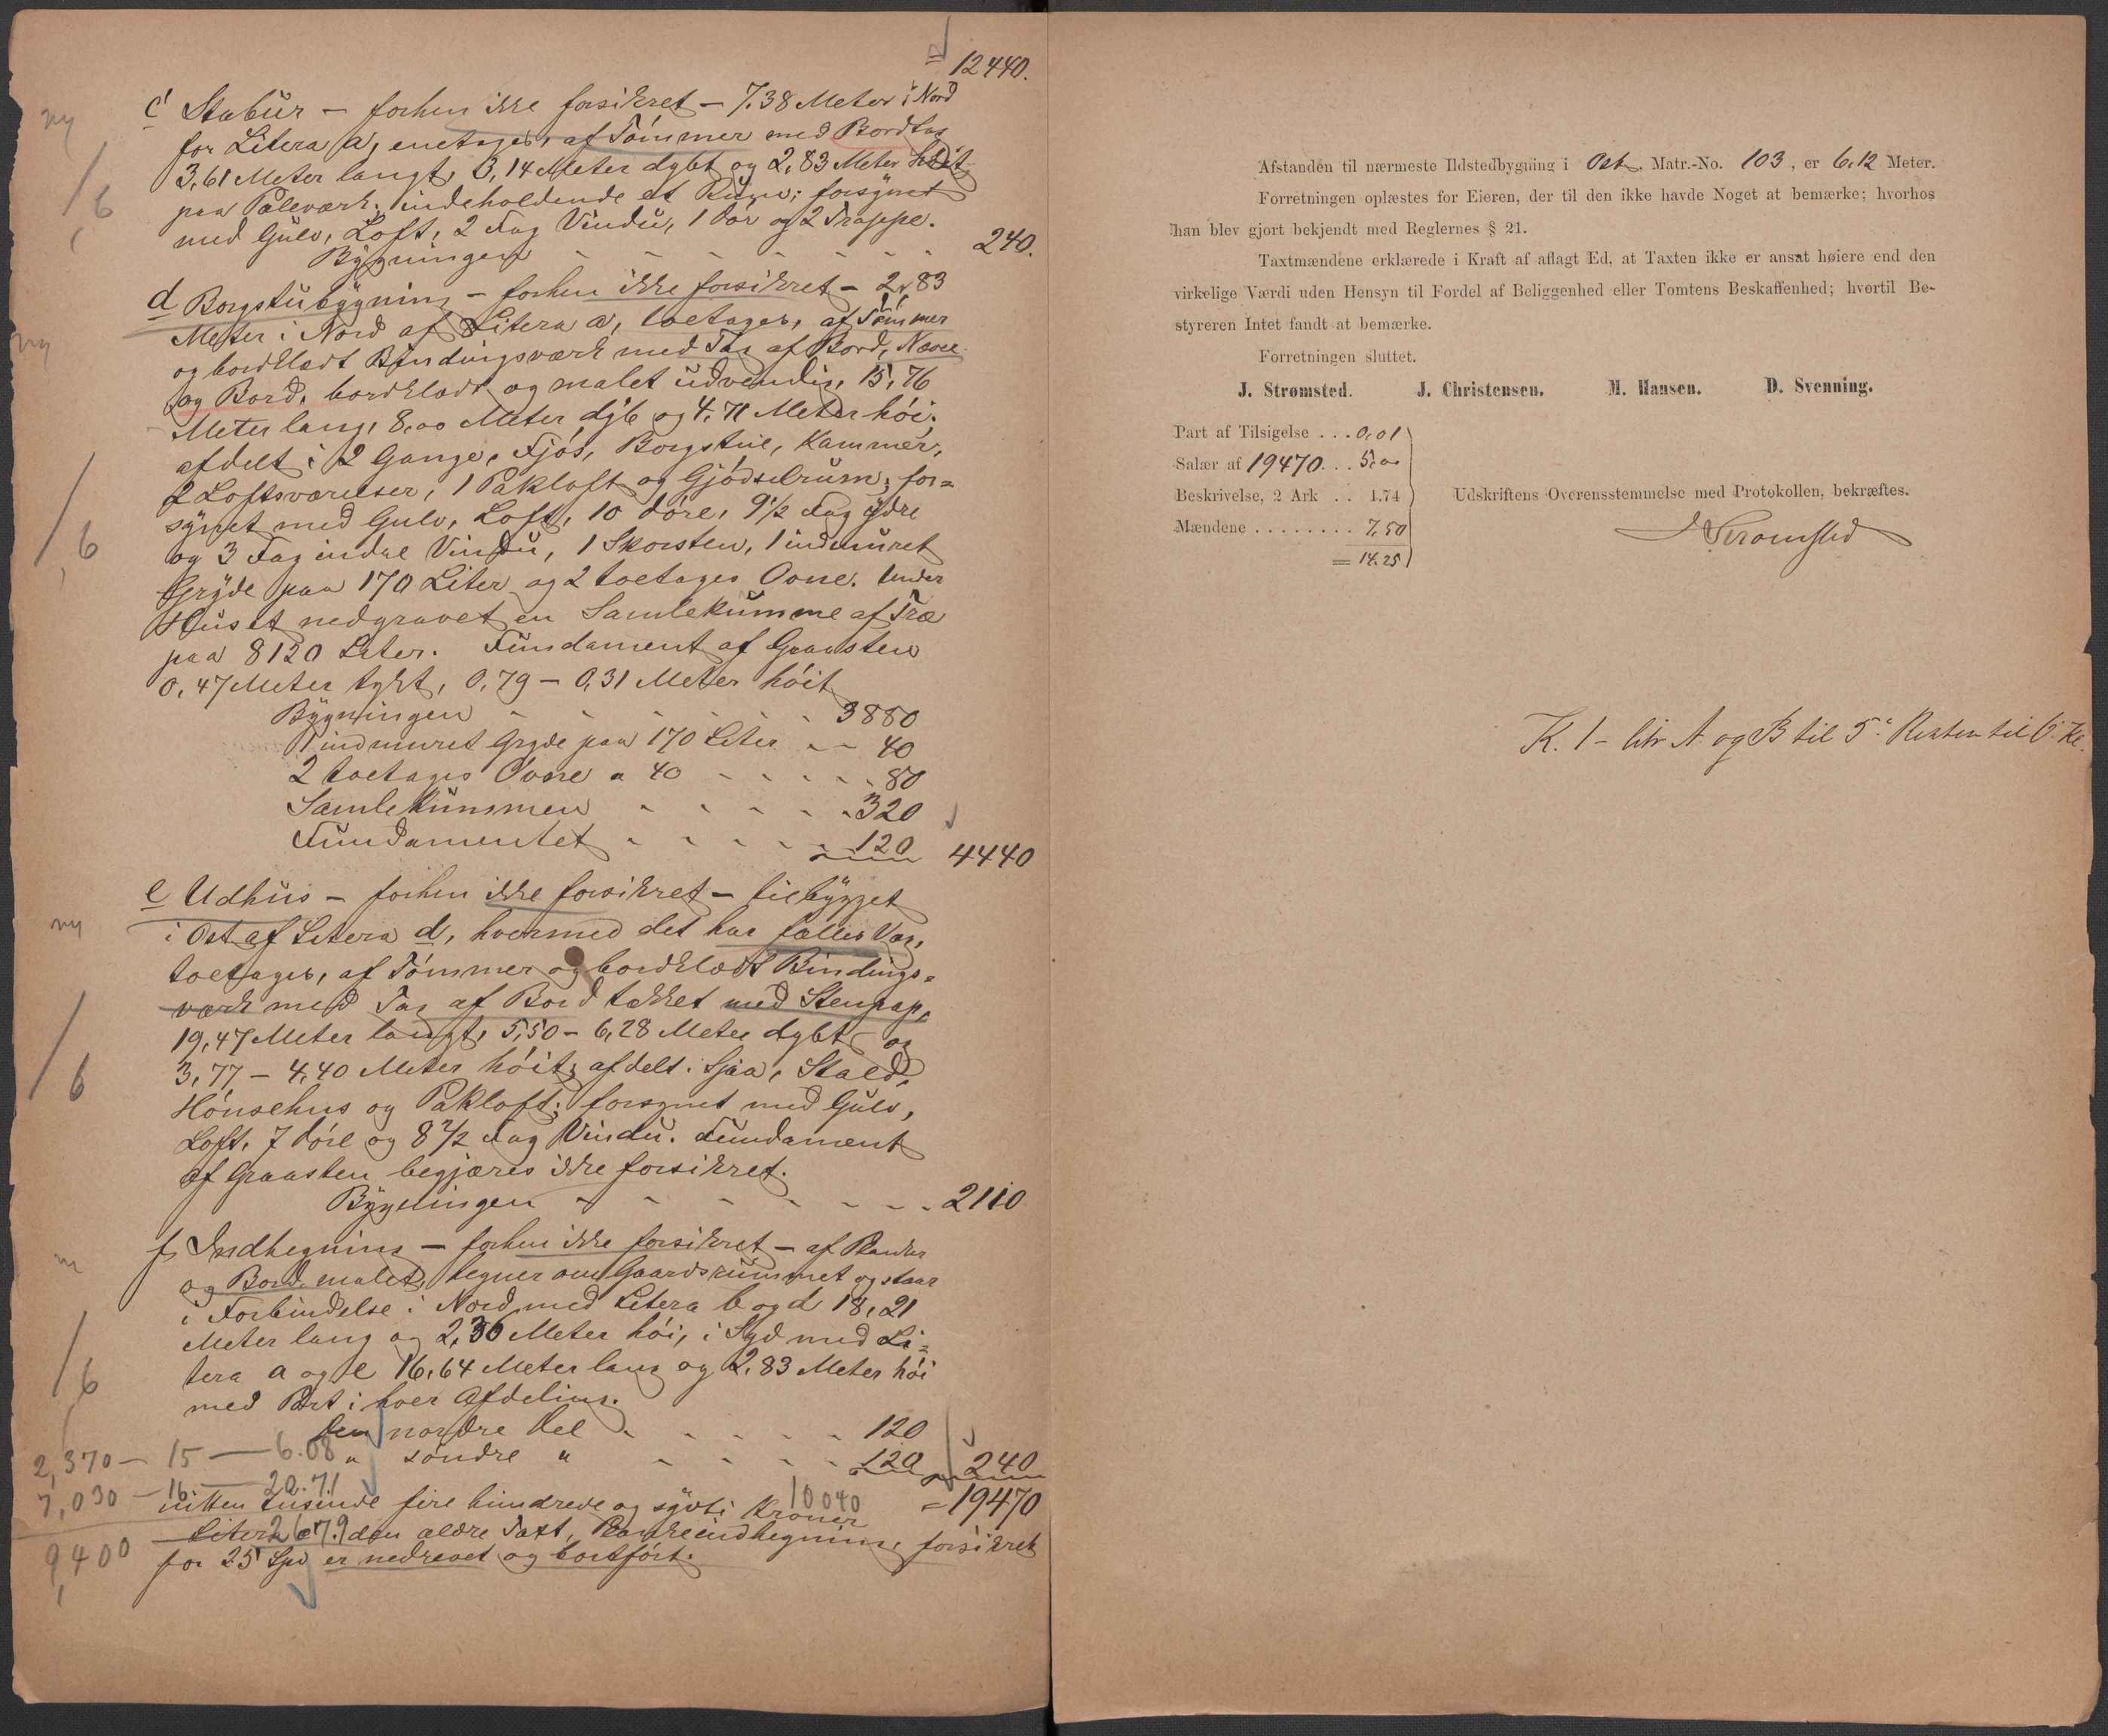 12440.
c Stabur – forhen ikke forsikret – 7.38 Meter i Nord
for Litera a, enetages, af Tømmer med Bordtag
3,61 Meter langt, 3,14 Meter dybt og 2,83 Meter høit
paa Peleværk, indeholdende et Rum; forsynet
med Gulv, Loft, 2 Fag Vindu, 1 Dør og 2 Trappe.
Bygningen - - - - - - - 240.
ny
/6
d Borgstubygning – forhen ikke forsikret – 2,83
Meter i Nord af Litera a, toetages, af Tømmer
og bordklædt Bindingsværk med Tag af Bord, Næver
og Bord, bordklædt og malet udvendig, 15,76
Meter lang, 8,00 Meter dyb og 4,71 Meter høi;
afdelt i 2 Gange, Fjøs, Borgstue, Kammer,
2 Loftsværelser, 1 Pakloft og Gjødselrum; for=
synet med Gulv, Loft, 10 Døre, 9½ Fag ydre
og 3 Fag indre Vindu, 1 Skorsten, 1 indmuret
Gryde paa 170 Liter og 2 toetages Ovne. Under
Huset nedgravet en Samlekumme af Træ
paa 8120 Liter. Fundament af Graasten
0,47 Meter tykt, 0,79 – 0,31 Meter høit
ny
/6
Bygningen - - - - - 3880
1 indmuret Gryde paa 170 Liter - - 40
2 toetages Ovne a 40 - - - - - 80
Samlekummen - - - - - 320
Fundamentet - - - - - 120 4440
e Udhus – forhen ikke forsikret – tilbygget
i Øst af Litera d, hvormed det har fælles Væg,
toetages, af Tømmer og bordklædt Bindings=
værk med Tag af Bord tækket med Stenpap,
19,47 Meter langt, 5,50 – 6,28 Meter dybt og
3,77 – 4,40 Meter høit; afdelt i Sjaa, Stald,
Hønsehus og Pakloft; forsynet med Gulv,
Loft, 7 Døre og 8 ½ Fag Vindu. Fundament
af Graasten begjæres ikke forsikret.
Bygningen - - - - - - 2110
ny
/6
f Indhegning – forhen ikke forsikret – af Planker
og Bord malet, hegner om Gaardsrummet og staar
i Forbindelse i Nord med Litera b og d 18,21
Meter lang og 2,36 Meter høi, i Syd med Li=
tera a og e 16,64 Meter lang og 2,83 Meter høi
med Port i hver Afdeling.
/6
Den nordre Del - - - - - 120
" søndre " - - - - 120 240
2,370 – 15 – 6.08
7,030 – 16 – 20.71
nitten tusinde fire hundrede og sytti Kroner = 19470
10040
26 79
Litera den ældre Taxt, Plankeindhegning, forsikret
9,400
for 25 Spd er nedrevet og bortført.
Afstanden til nærmeste Ildstedbygning i Øst, Matr.-No. 103, er 6,12 Meter.
Forretningen oplæstes for Eieren, der til den ikke havde Noget at bemærke; hvorhos
han blev gjort bekjendt med Reglernes § 21.
Taxtmændene erklærede i Kraft af aflagt Ed, at Taxten ikke er ansat høiere end den
virkelige Værdi uden Hensyn til Fordel af Beliggenhed eller Tomtens Beskaffenhed; hvortil Be-
styreren Intet fandt at bemærke.
Forretningen sluttet.
J. Strømsted. J. Christensen. M. Hansen. D. Svenning.
Part af Tilsigelse . . . 0,01
Salær af 19470 . . . 5,00
Beskrivelse, 2 Ark . . 1.74
Mændene . . . . . . . . 7,50
= 14.25
Udskriftens Overensstemmelse med Protokollen, bekræftes.
J Strømsted
K. 1 – litr A og B til 5. Resten til 6. Kl.